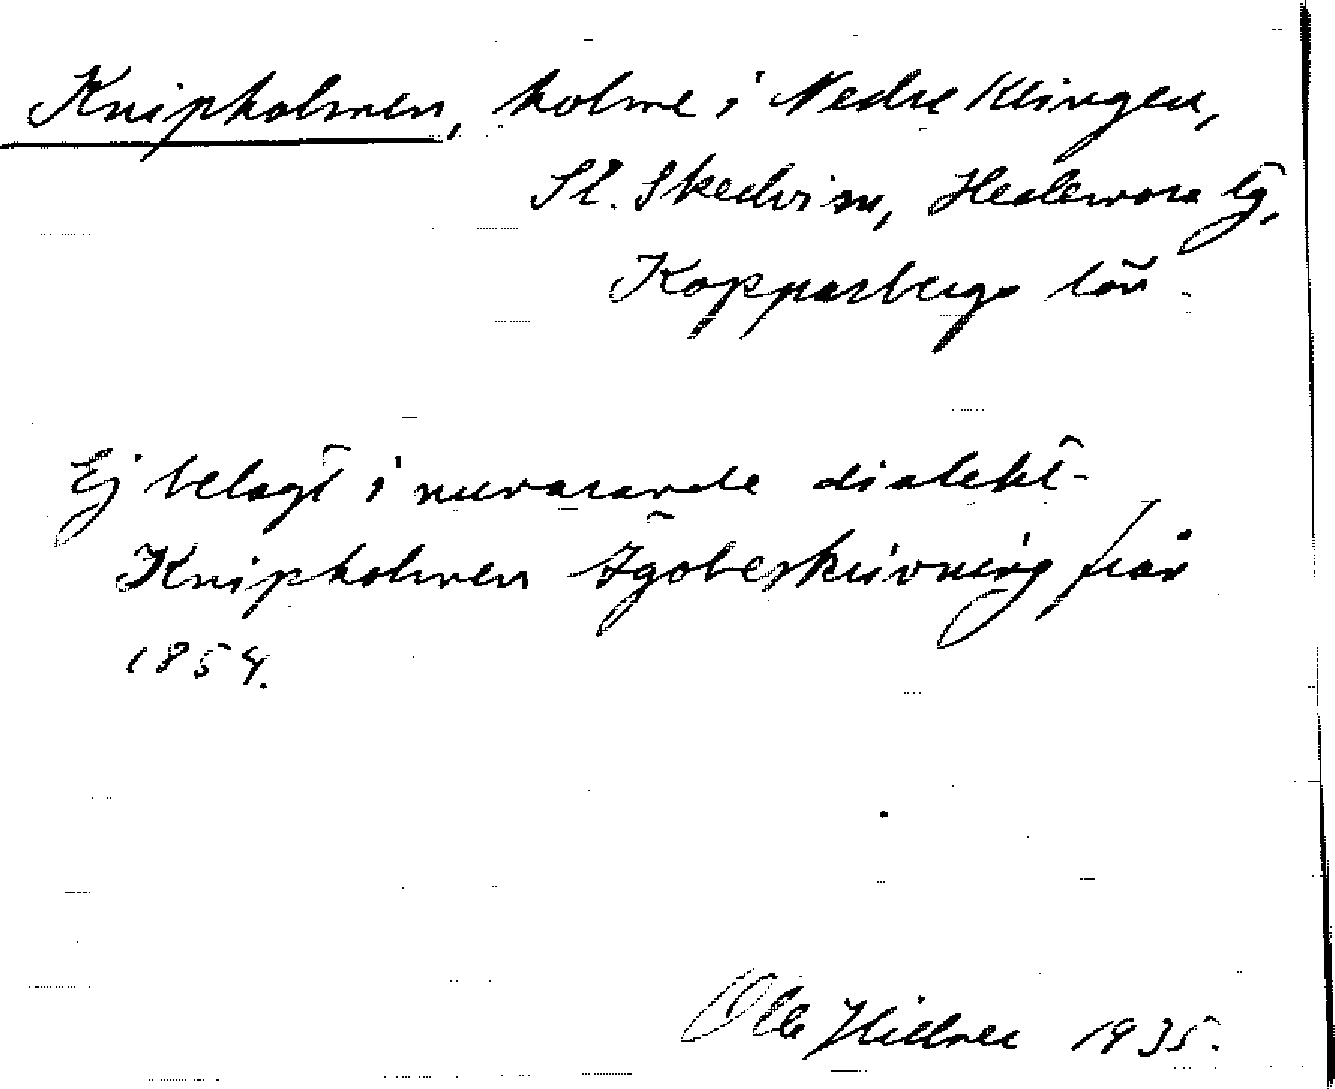 Knipholmen, holme i Nedre Klingen,
St. Skedvi sn, Hedemora tg,
Kopparbergs län.
Ej belagt i nuvarande dialekt.
Knipholmen Ägobeskrivning från
1854.
Olle Hillner 1935.